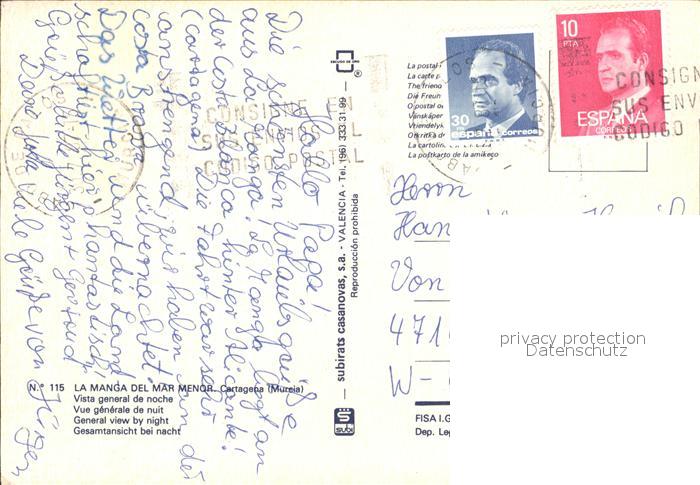 Hallo Papa!
Die schönsten Urlaubsgrüße
aus La Manga. La Manga liegt an
der Costa Blanca hinter Alicante!
(Cartagena). Die Fahrt war sehr
anstrengend, wir haben an der
Costa Brava übernachtet.
Das Wetter und die Land-
schaft ist hier phantastisch.
Grüße bitte
Viele Grüße von Jürgen,
N.º 115 LA MANGA DEL MAR MENOR. Cartagena (Murcia)
Vista general de noche
Vue générale de nuit
General view by night
Gesamtansicht bei nacht
ESCUDO DE ORO
®
subirats casanovas, s.a. - VALENCIA - Tel. (96) 333 31 99
Reproducción prohibida
SUBI
La postal
La carte p
The friend
Die Freun
O postal o
Vänskaper
Vriendelyk
La cartolin
La postkarto de la amikeco
30
españa correos
10
PTA
ESPAÑA
CORREOS
CONSIGNE EN
SUS ENVIOS EL
CODIGO POSTAL
CONSIGN
SUS ENV
CODIGO
Herrn
Han
Von
471
W-
FISA I.G
Dep. Leg
privacy protection
Datenschutz